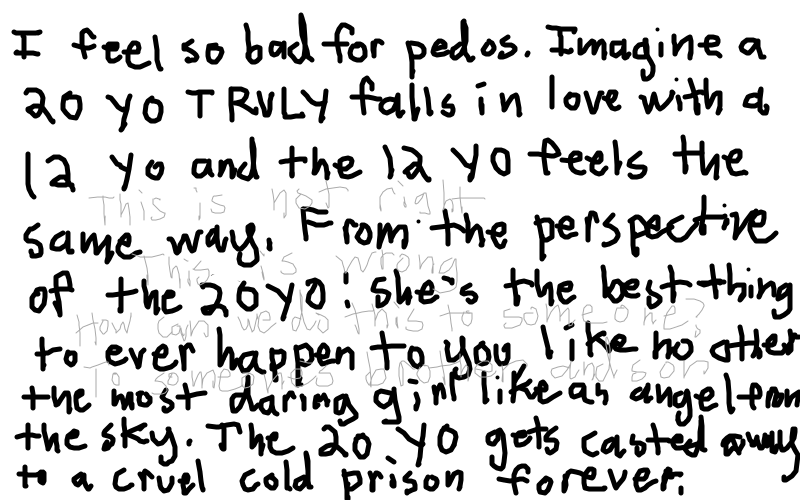 I feel so bad for pedos. Imagine a
20 yo TRULY falls in love with a
12 yo and the 12 yo feels the
This is not right
same way. From the perspective
This is wrong
of the 20 yo: she's the best thing
How can we do this to someone?
to ever happen to you like no other
To someones brother and son
the most daring girl like an angel from
the sky. The 20 yo gets casted away
to a cruel cold prison forever.